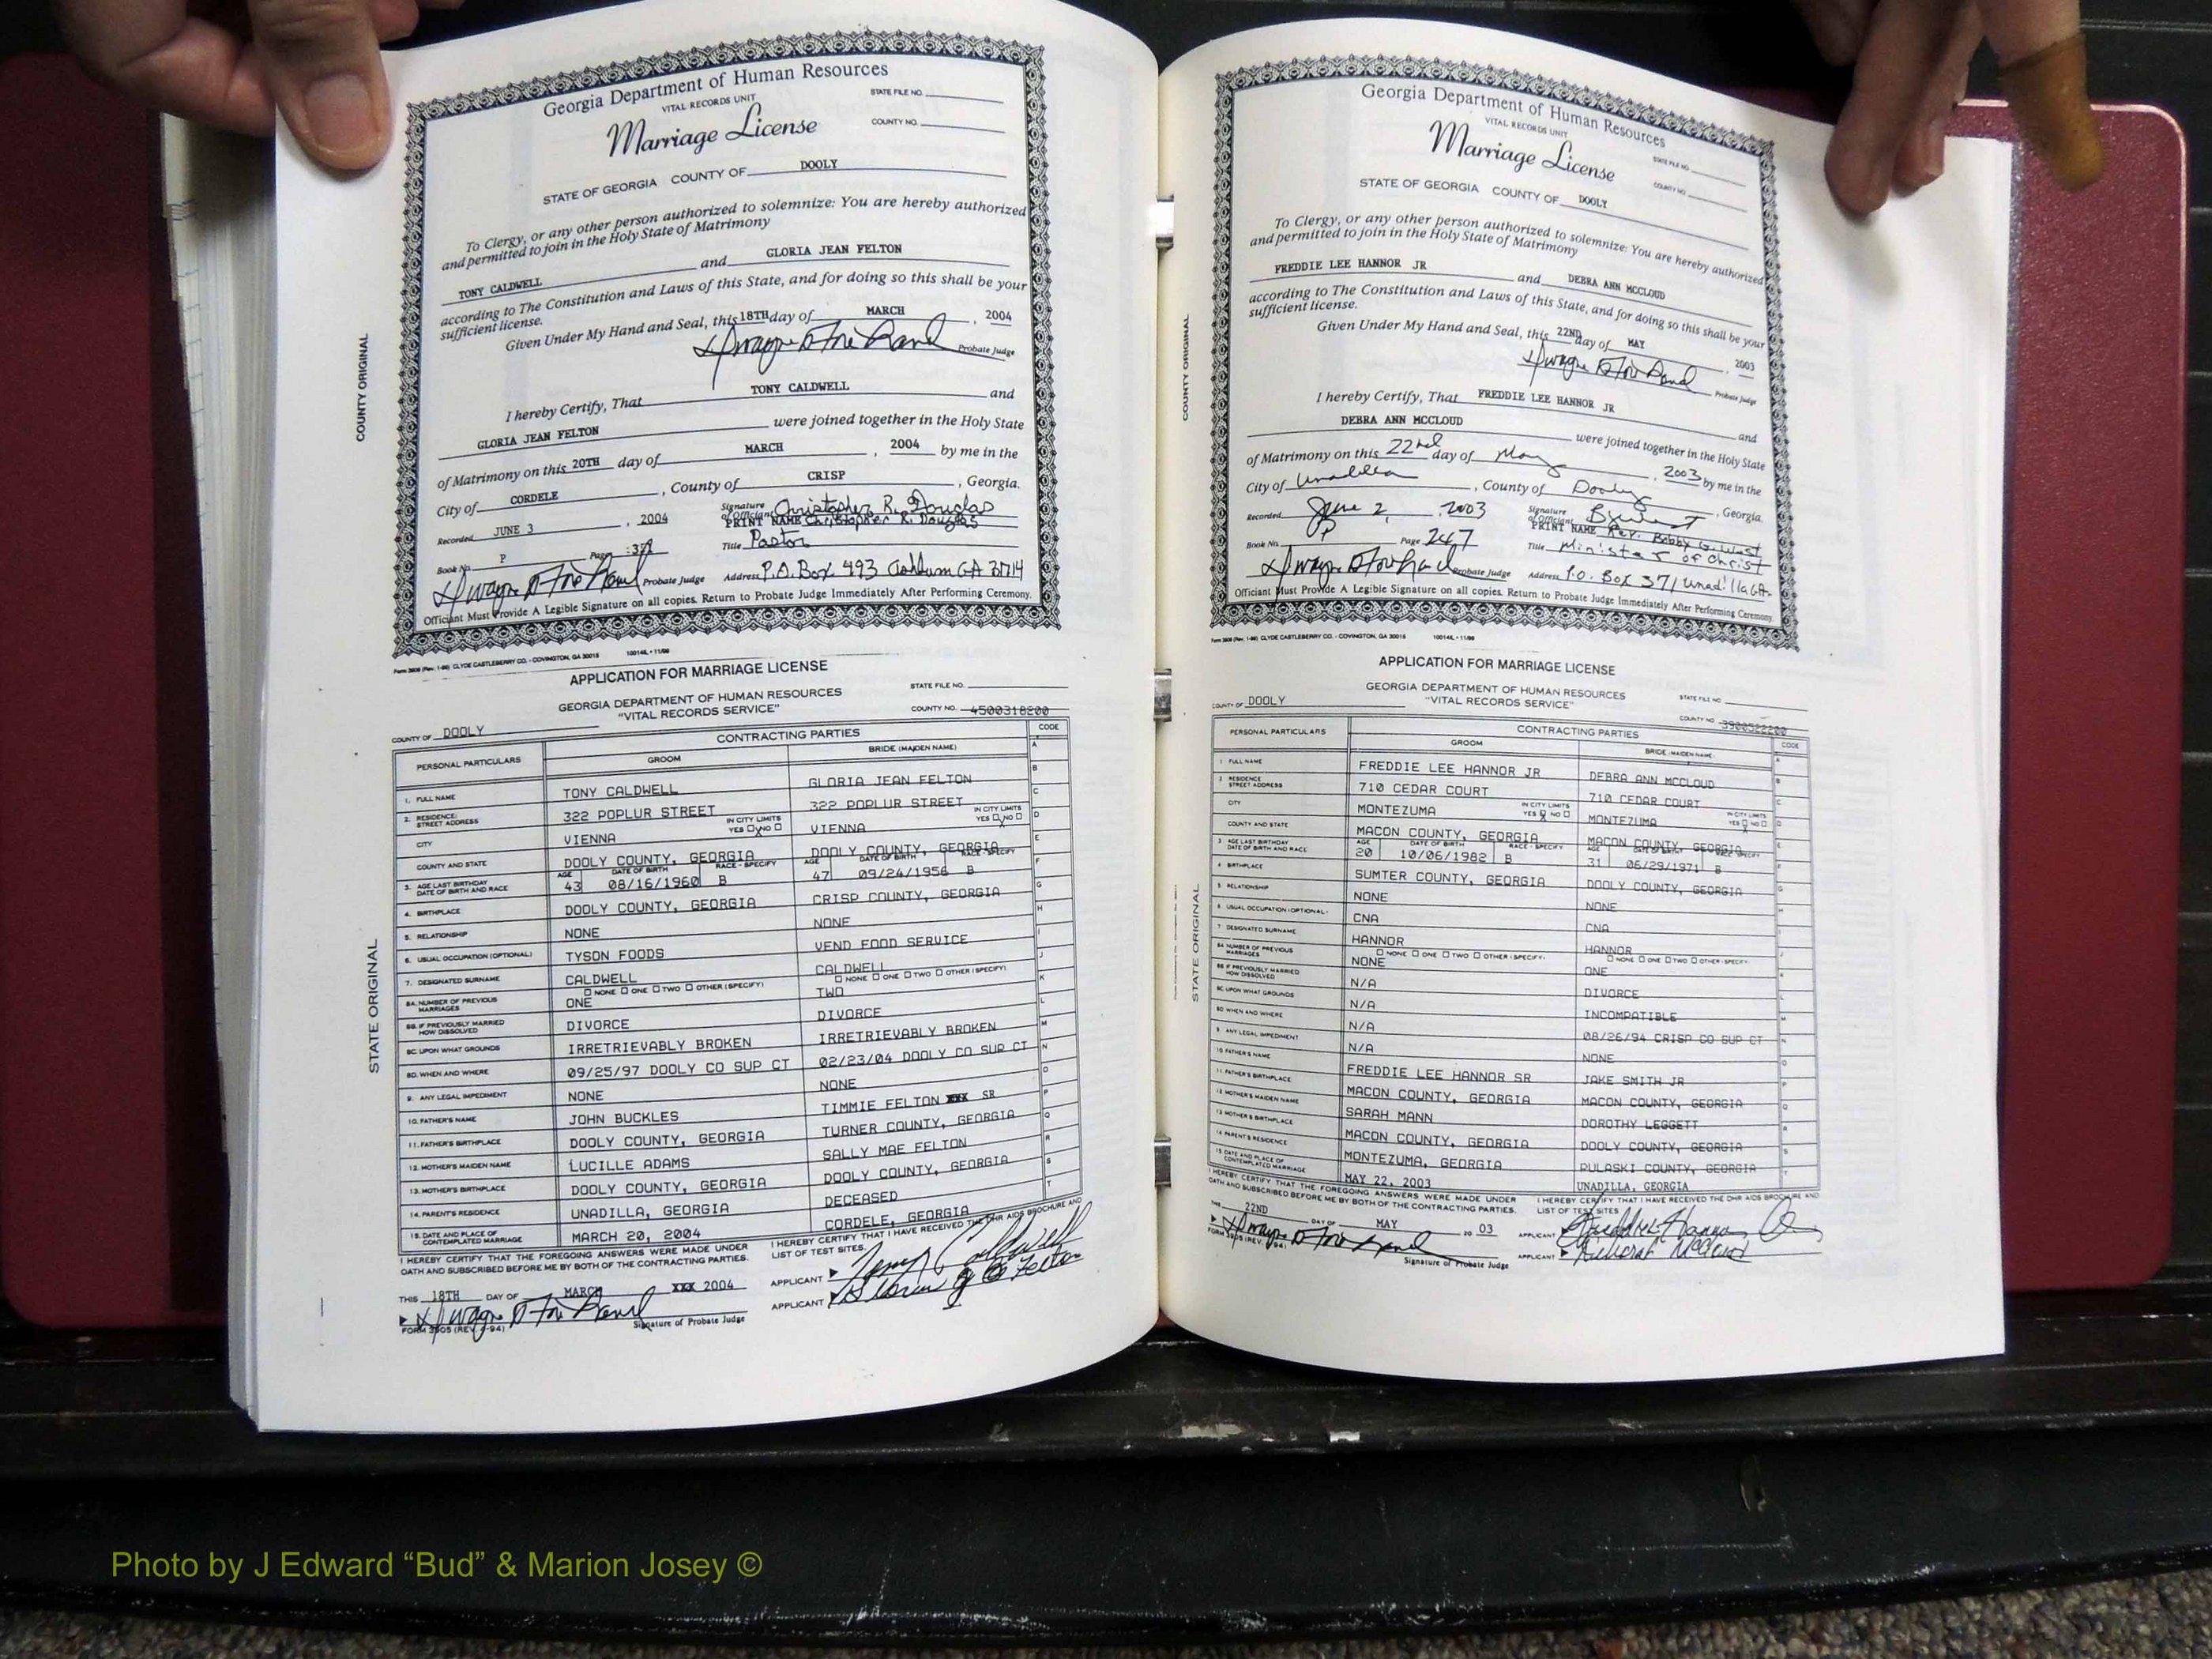 Georgia Department of Human Resources
VITAL RECORDS UNIT
STATE FILE NO.
Marriage License
COUNTY NO.
STATE OF GEORGIA COUNTY OF DOOLY
To Clergy, or any other person authorized to solemnize: You are hereby authorized
and permitted to join in the Holy State of Matrimony
TONY CALDWELL and GLORIA JEAN FELTON
according to The Constitution and Laws of this State, and for doing so this shall be your
sufficient license.
Given Under My Hand and Seal, this 18TH day of MARCH, 2004
Probate Judge
I hereby Certify, That TONY CALDWELL and
GLORIA JEAN FELTON were joined together in the Holy State
of Matrimony on this 20TH day of MARCH, 2004 by me in the
City of CORDELE, County of CRISP, Georgia.
Signature of Officiant Christopher R. Douglas
Recorded JUNE 3, 2004 PRINT NAME Christopher R. Douglas
Book No. P Page Title Pastor
Probate Judge Address P.O. Box 493
Officiant Must Provide A Legible Signature on all copies. Return to Probate Judge Immediately After Performing Ceremony.
COUNTY ORIGINAL
Form 3908 (Rev. 1-98) CLYDE CASTLEBERRY CO. - COVINGTON, GA 30015 10014L • 11/98
APPLICATION FOR MARRIAGE LICENSE
GEORGIA DEPARTMENT OF HUMAN RESOURCES
STATE FILE NO.
"VITAL RECORDS SERVICE"
COUNTY NO. 4500318200
COUNTY OF DOOLY
PERSONAL PARTICULARS CONTRACTING PARTIES CODE
GROOM BRIDE (MAIDEN NAME)
1. FULL NAME TONY CALDWELL GLORIA JEAN FELTON
2. RESIDENCE: STREET ADDRESS 322 POPLUR STREET 322 POPLUR STREET
CITY VIENNA IN CITY LIMITS YES NO VIENNA IN CITY LIMITS YES NO
COUNTY AND STATE DOOLY COUNTY, GEORGIA DOOLY COUNTY, GEORGIA
3. AGE LAST BIRTHDAY DATE OF BIRTH AND RACE AGE 43 DATE OF BIRTH 08/16/1960 RACE - SPECIFY B AGE 47 DATE OF BIRTH 09/24/1956 RACE - SPECIFY B
4. BIRTHPLACE DOOLY COUNTY, GEORGIA CRISP COUNTY, GEORGIA
5. RELATIONSHIP NONE NONE
6. USUAL OCCUPATION (OPTIONAL) TYSON FOODS VEND FOOD SERVICE
7. DESIGNATED SURNAME CALDWELL CALDWELL
8A. NUMBER OF PREVIOUS MARRIAGES NONE ONE TWO OTHER (SPECIFY) ONE NONE ONE TWO OTHER (SPECIFY) TWO
8B. IF PREVIOUSLY MARRIED HOW DISSOLVED DIVORCE DIVORCE
8C. UPON WHAT GROUNDS IRRETRIEVABLY BROKEN IRRETRIEVABLY BROKEN
8D. WHEN AND WHERE 09/25/97 DOOLY CO SUP CT 02/23/04 DOOLY CO SUP CT
9. ANY LEGAL IMPEDIMENT NONE NONE
10. FATHER'S NAME JOHN BUCKLES TIMMIE FELTON XXX SR
11. FATHER'S BIRTHPLACE DOOLY COUNTY, GEORGIA TURNER COUNTY, GEORGIA
12. MOTHER'S MAIDEN NAME LUCILLE ADAMS SALLY MAE FELTON
13. MOTHER'S BIRTHPLACE DOOLY COUNTY, GEORGIA DOOLY COUNTY, GEORGIA
14. PARENT'S RESIDENCE UNADILLA, GEORGIA DECEASED
15. DATE AND PLACE OF CONTEMPLATED MARRIAGE MARCH 20, 2004 CORDELE, GEORGIA
I HEREBY CERTIFY THAT THE FOREGOING ANSWERS WERE MADE UNDER
OATH AND SUBSCRIBED BEFORE ME BY BOTH OF THE CONTRACTING PARTIES.
I HEREBY CERTIFY THAT I HAVE RECEIVED THE DHR AIDS BROCHURE AND
LIST OF TEST SITES.
APPLICANT Tony Caldwell
THIS 18TH DAY OF MARCH XXX 2004
APPLICANT
FORM 3905 (REV. 4-94) Signature of Probate Judge
STATE ORIGINAL
Georgia Department of Human Resources
VITAL RECORDS UNIT
STATE FILE NO.
Marriage License
COUNTY NO.
STATE OF GEORGIA COUNTY OF DOOLY
To Clergy, or any other person authorized to solemnize: You are hereby authorized
and permitted to join in the Holy State of Matrimony
FREDDIE LEE HANNOR JR and DEBRA ANN MCCLOUD
according to The Constitution and Laws of this State, and for doing so this shall be your
sufficient license.
Given Under My Hand and Seal, this 22ND day of MAY, 2003
Probate Judge
I hereby Certify, That FREDDIE LEE HANNOR JR and
DEBRA ANN MCCLOUD were joined together in the Holy State
of Matrimony on this 22nd day of May, 2003 by me in the
City of Unadilla, County of Dooly, Georgia.
Recorded June 2, 2003 Signature of Officiant
PRINT NAME Rev. Bobby G. West
Book No. P Page 247 Title Minister of Christ
Probate Judge Address P.O. Box 371 Unadilla GA.
Officiant Must Provide A Legible Signature on all copies. Return to Probate Judge Immediately After Performing Ceremony.
COUNTY ORIGINAL
Form 3908 (Rev. 1-98) CLYDE CASTLEBERRY CO. - COVINGTON, GA 30015 10014L • 11/98
APPLICATION FOR MARRIAGE LICENSE
GEORGIA DEPARTMENT OF HUMAN RESOURCES
STATE FILE NO.
"VITAL RECORDS SERVICE"
COUNTY OF DOOLY
COUNTY NO. 3900522200
PERSONAL PARTICULARS CONTRACTING PARTIES CODE
GROOM BRIDE (MAIDEN NAME)
1. FULL NAME FREDDIE LEE HANNOR JR DEBRA ANN MCCLOUD
2. RESIDENCE STREET ADDRESS 710 CEDAR COURT 710 CEDAR COURT
CITY MONTEZUMA IN CITY LIMITS YES NO MONTEZUMA IN CITY LIMITS YES NO
COUNTY AND STATE MACON COUNTY, GEORGIA MACON COUNTY, GEORGIA
3. AGE LAST BIRTHDAY DATE OF BIRTH AND RACE AGE 20 DATE OF BIRTH 10/06/1982 RACE - SPECIFY B AGE 31 DATE OF BIRTH 06/29/1971 RACE - SPECIFY B
4. BIRTHPLACE SUMTER COUNTY, GEORGIA DOOLY COUNTY, GEORGIA
5. RELATIONSHIP NONE NONE
6. USUAL OCCUPATION (OPTIONAL) CNA CNA
7. DESIGNATED SURNAME HANNOR HANNOR
8A. NUMBER OF PREVIOUS MARRIAGES NONE ONE TWO OTHER (SPECIFY) NONE NONE ONE TWO OTHER (SPECIFY) ONE
8B. IF PREVIOUSLY MARRIED HOW DISSOLVED N/A DIVORCE
8C. UPON WHAT GROUNDS N/A INCOMPATIBLE
8D. WHEN AND WHERE N/A 08/26/94 CRISP CO SUP CT
9. ANY LEGAL IMPEDIMENT N/A NONE
10. FATHER'S NAME FREDDIE LEE HANNOR SR JAKE SMITH JR
11. FATHER'S BIRTHPLACE MACON COUNTY, GEORGIA MACON COUNTY, GEORGIA
12. MOTHER'S MAIDEN NAME SARAH MANN DOROTHY LEGGETT
13. MOTHER'S BIRTHPLACE MACON COUNTY, GEORGIA DOOLY COUNTY, GEORGIA
14. PARENT'S RESIDENCE MONTEZUMA, GEORGIA PULASKI COUNTY, GEORGIA
15. DATE AND PLACE OF CONTEMPLATED MARRIAGE MAY 22, 2003 UNADILLA, GEORGIA
I HEREBY CERTIFY THAT THE FOREGOING ANSWERS WERE MADE UNDER
OATH AND SUBSCRIBED BEFORE ME BY BOTH OF THE CONTRACTING PARTIES.
I HEREBY CERTIFY THAT I HAVE RECEIVED THE DHR AIDS BROCHURE AND
LIST OF TEST SITES
THIS 22ND DAY OF MAY 20 03
APPLICANT
APPLICANT
FORM 3905 (REV. 4-94) Signature of Probate Judge
STATE ORIGINAL
Photo by J Edward “Bud” & Marion Josey ©